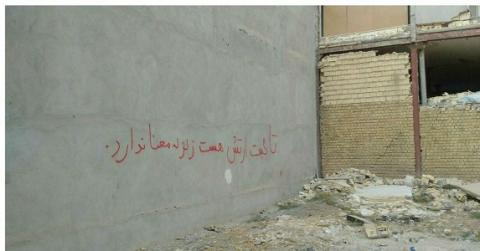 تا کفت ارتش هست زلزله معنا ندارد.